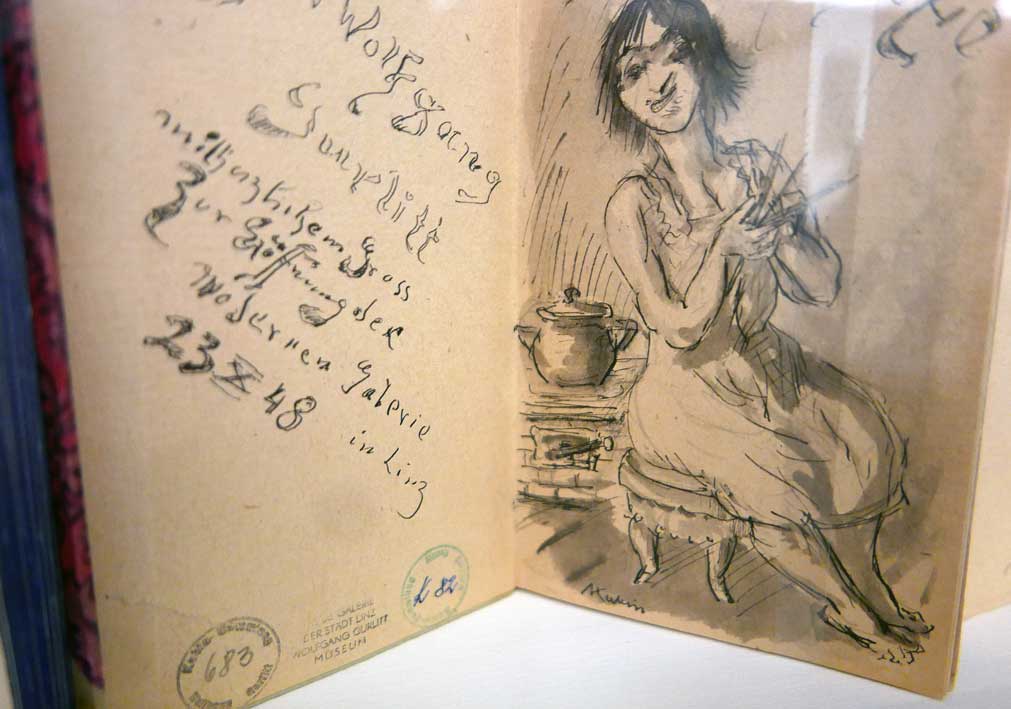 Wolfgang
Gurlitt
mit herzlichem Gruss
Zur Eröffnung der
Modernen Galerie
in Linz
23 X 48
GALERIE
DER STADT LINZ
WOLFGANG GURLITT
MUSEUM
K 82
683
Kubin